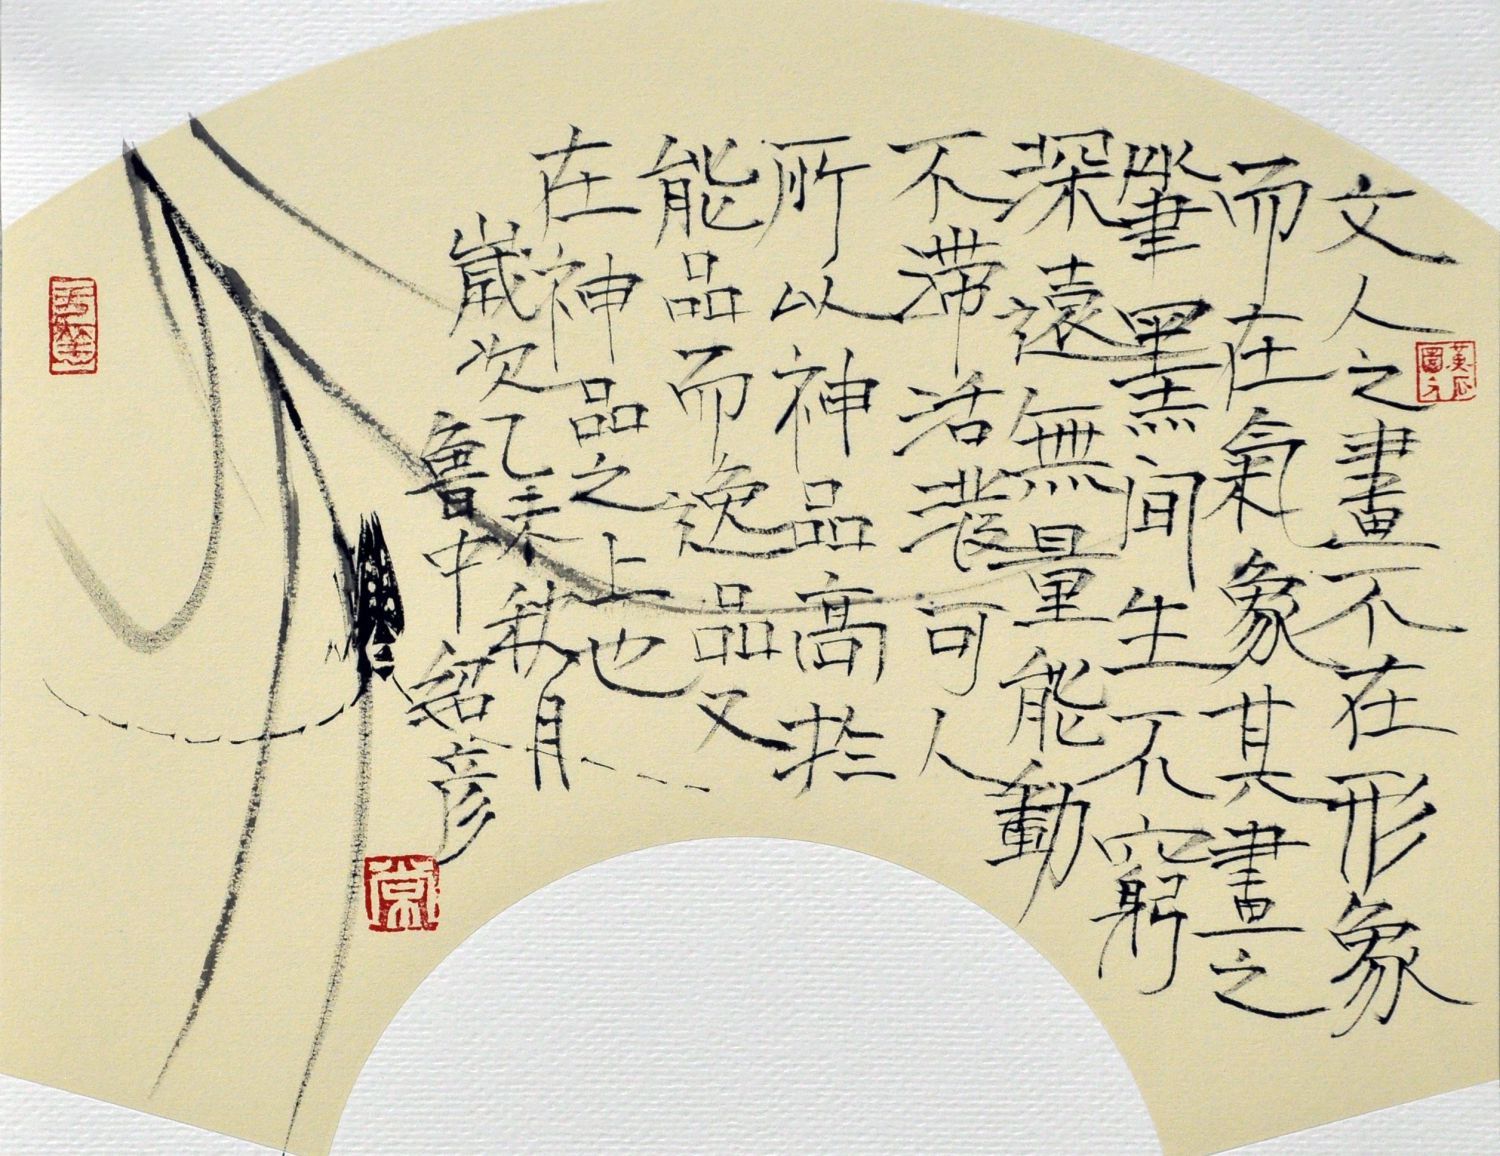 文人之畫不在形象
而在氣象其畫之
筆墨间生不窮
深遠無量能動
不滞活裝可人
所以神品高於
能品而逸品又
在神品之上也
歲次乙未秋月
魯中紹彦